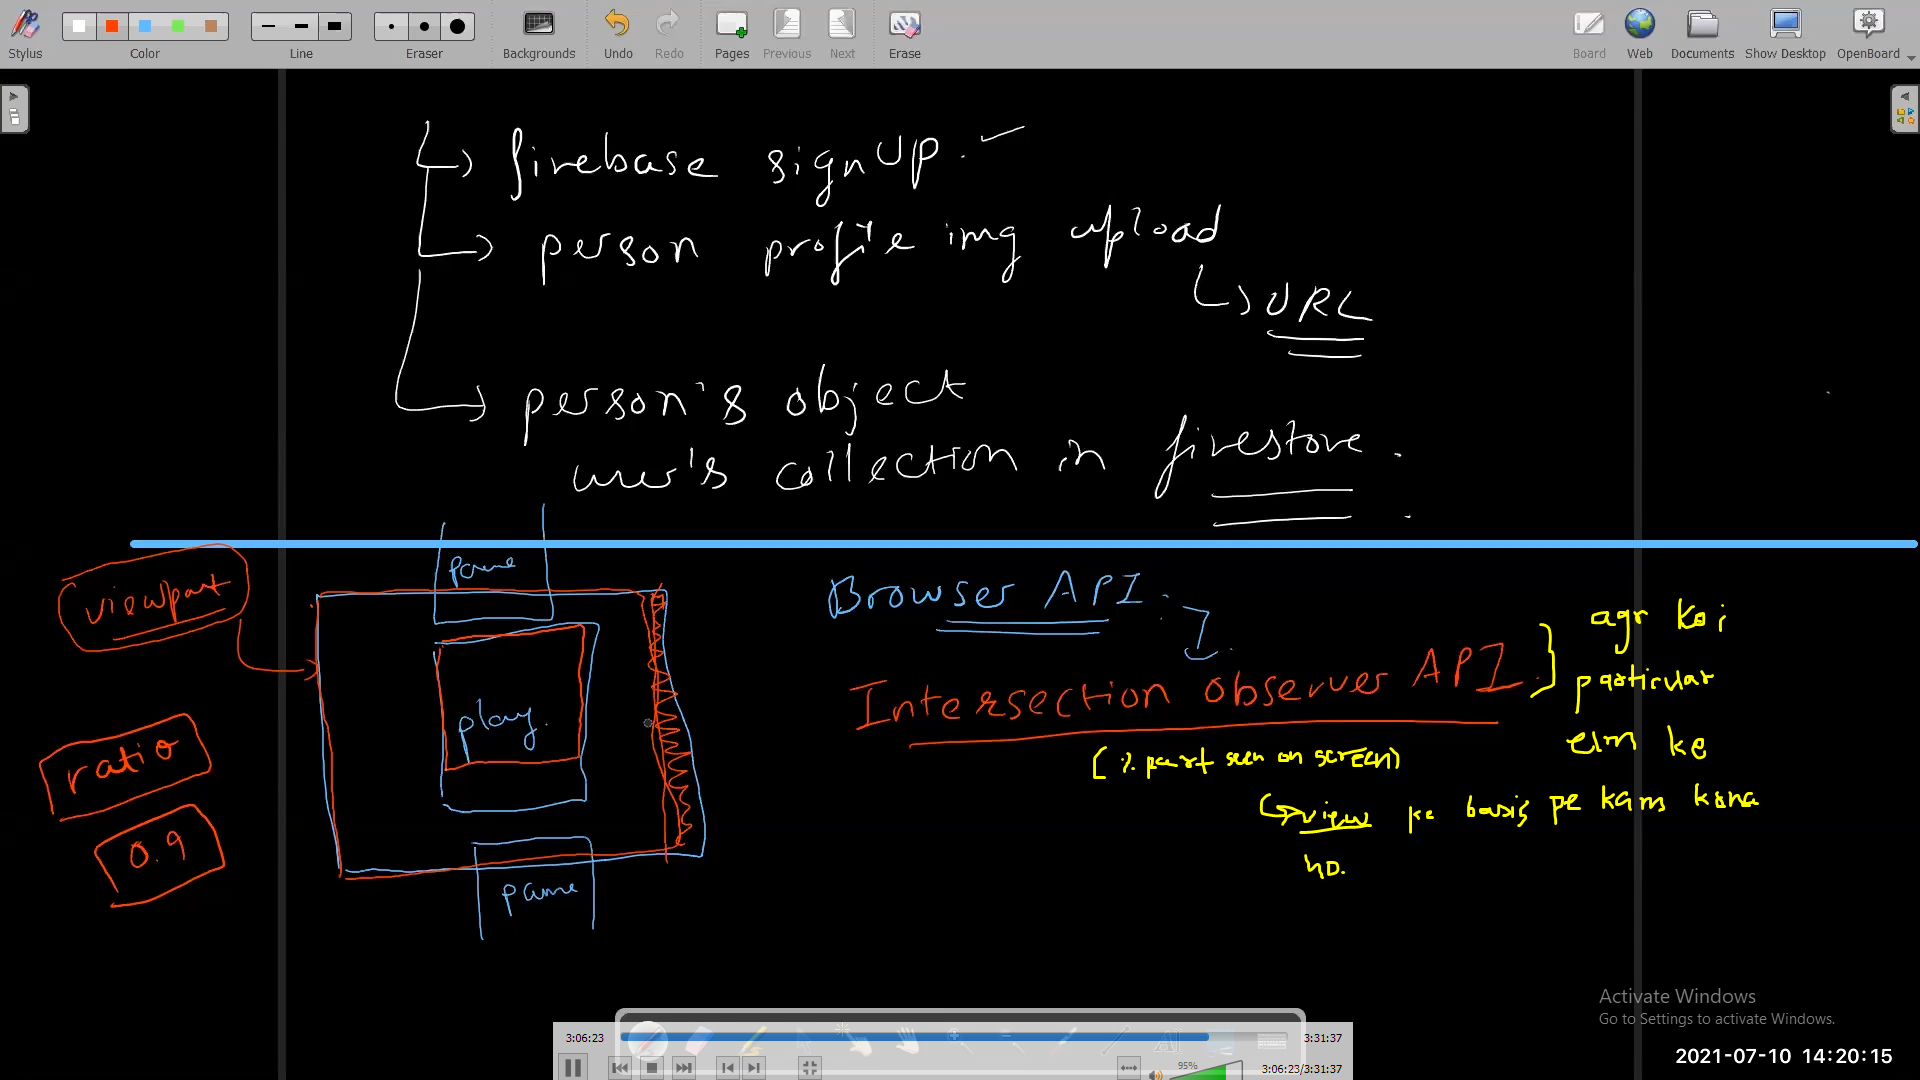 Stylus
Color
Line
Eraser
Backgrounds
Undo
Redo
Pages
Previous
Next
Erase
Board
Web
Documents
Show Desktop
OpenBoard
firebase signUp.
person profile img upload
URL
person's object
user's collection in firestore.
viewport
pause
play.
pause
ratio
0.9
Browser API.
Intersection observer API.
[% part seen on screen)
agr koi
particular
elm ke
view ke basis pe kam karna
ho.
Activate Windows
Go to Settings to activate Windows.
3:06:23
3:31:37
95%
3:06:23/3:31:37
2021-07-10 14:20:15